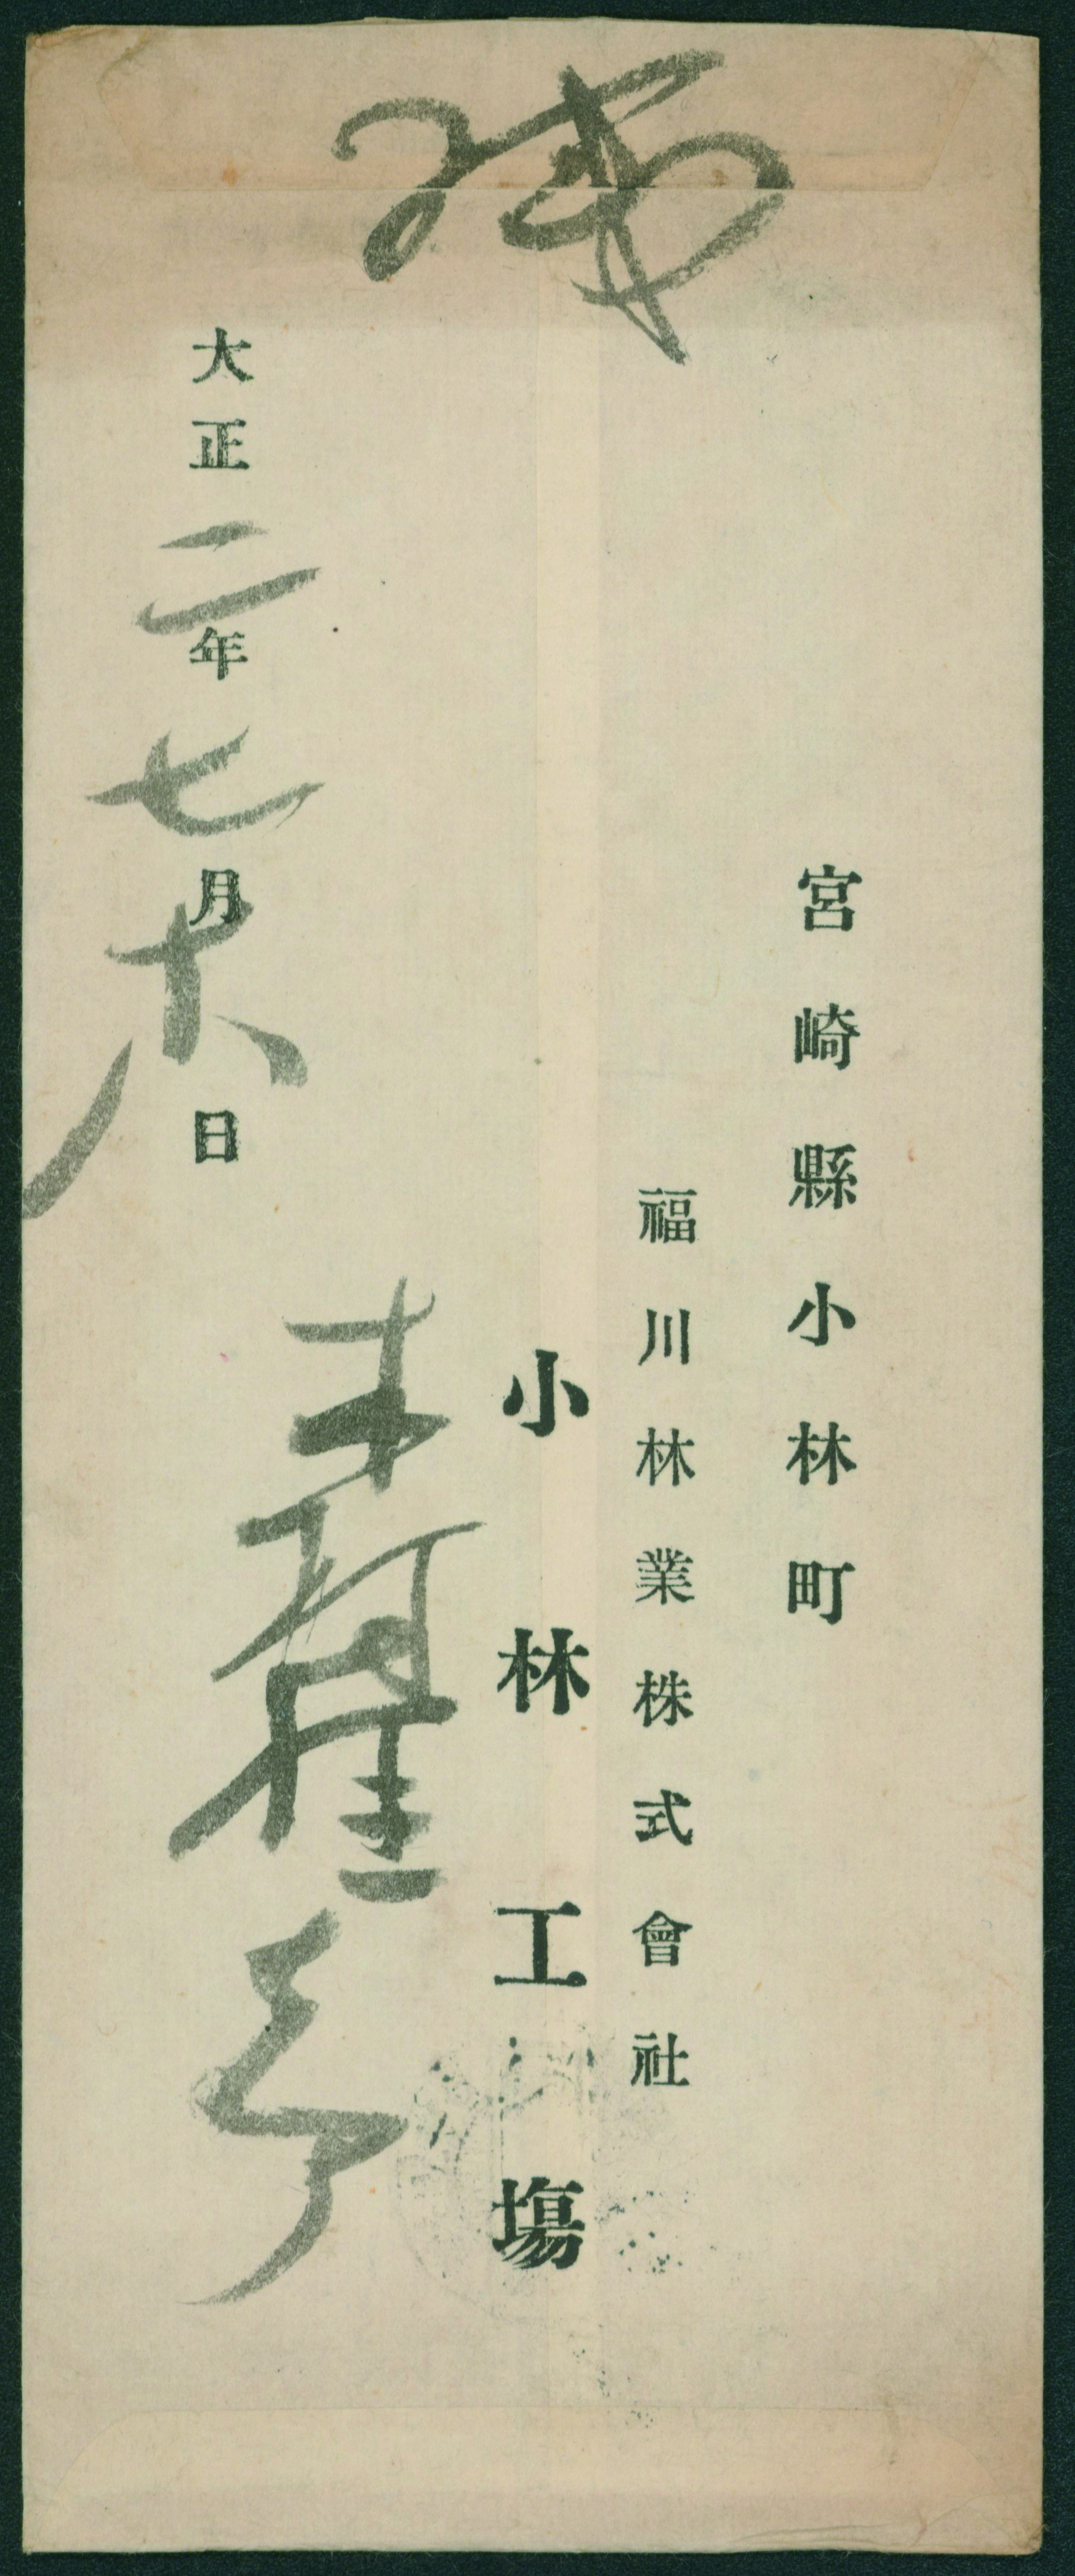 宮崎縣小林町
福川林業株式會社
小林工塲
大正二年七月十八日